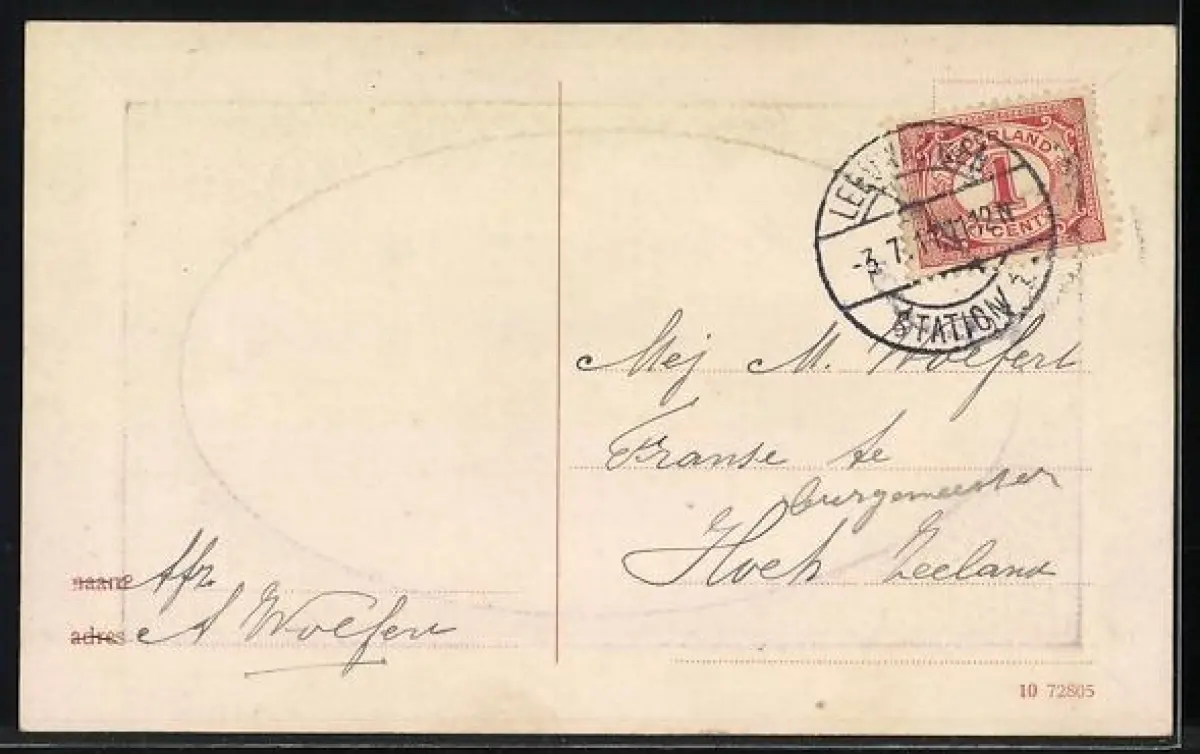 NEDERLAND
1
CENT
STATION
Mej M. Wolfert
Franse te
burgemeester
Hoek Zeeland
naam Afz.
adres A Wolfert
10 72805